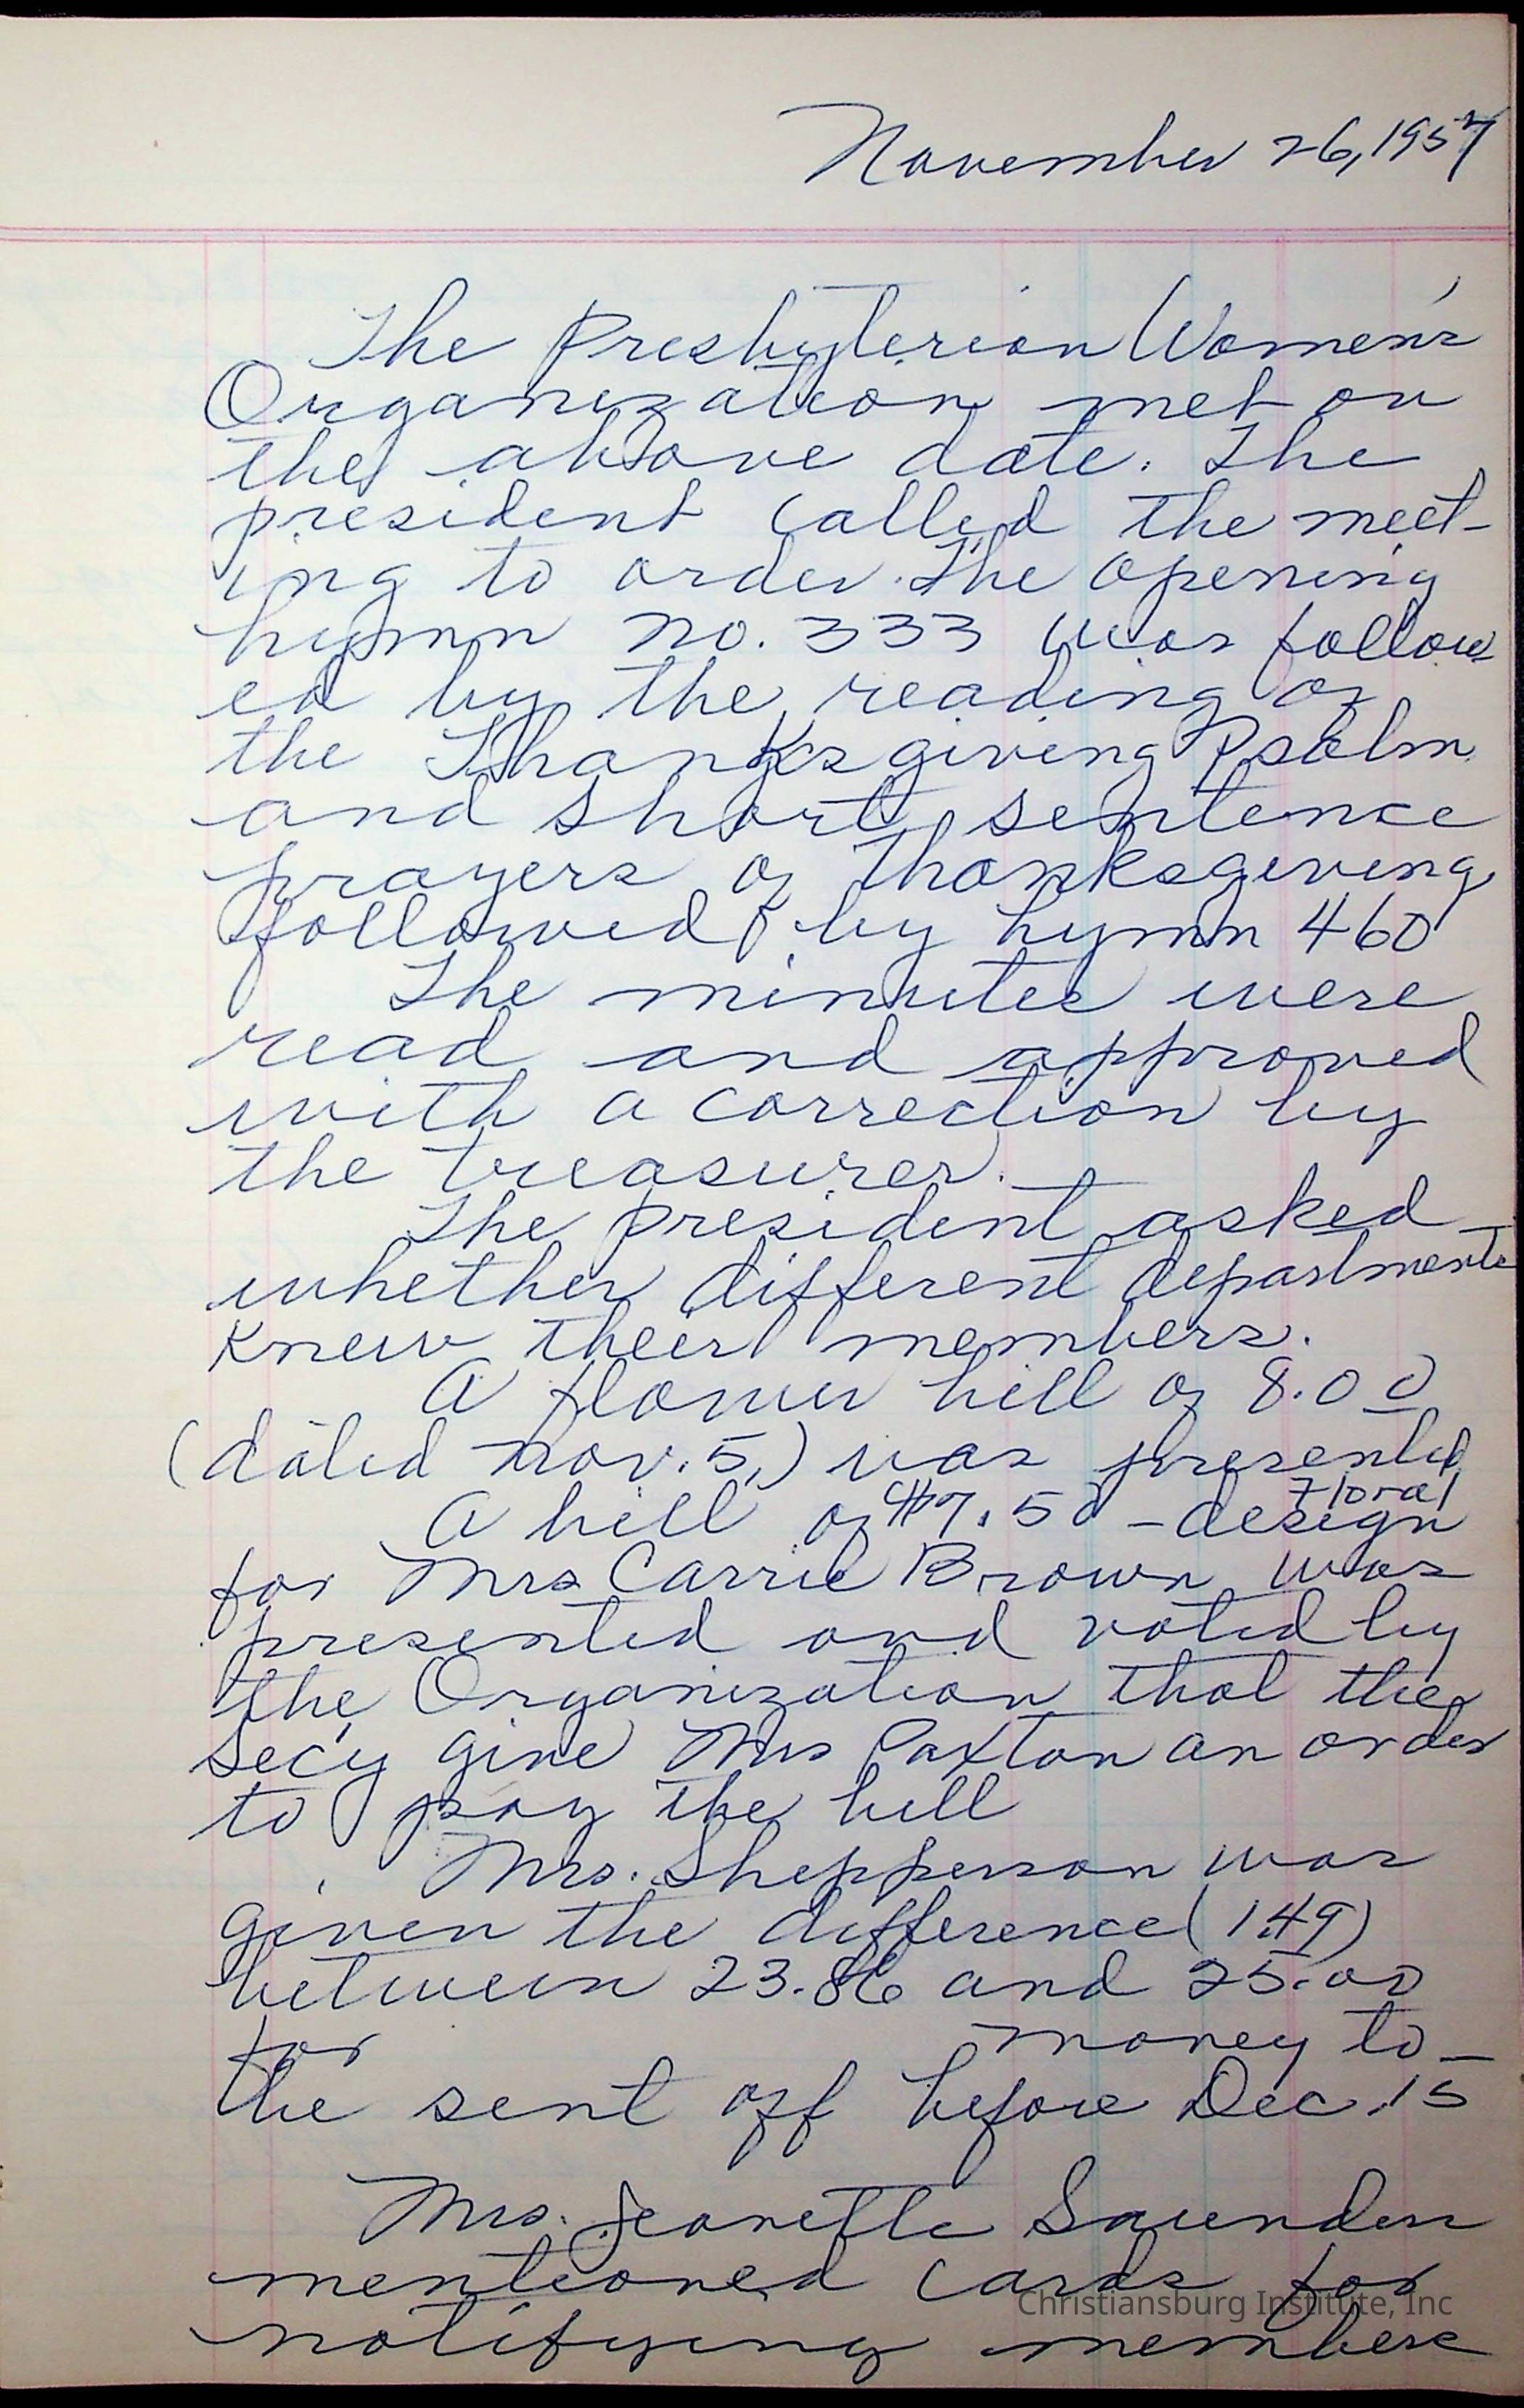 November 26, 1957
The Presbyterian Women's
Organization met on
the above date. The
president called the meet-
ing to order. The opening
hymn no. 333 was follow
ed by the reading of
the Thanksgiving Psalm
and short sentence
prayers of thanksgiving
followed by hymn 460
The minutes were
read and approved
with a correction by
the treasurer.
The president asked
whether different departments
knew their members.
A flower bill of 8.00
(dated Nov. 5,) was presented
A bill of $7.50 - floral design
for Mrs Carrie Brown was
presented and voted by
the Organization that the
Secy give Mrs Paxton an order
to pay the bill
Mrs. Shepperson was
given the difference (1.49)
between 23.86 and 25.00
for money to
be sent off before Dec. 15
Mrs. Jeanette Saunders
mentioned cards for
notifying members
Christiansburg Institute, Inc